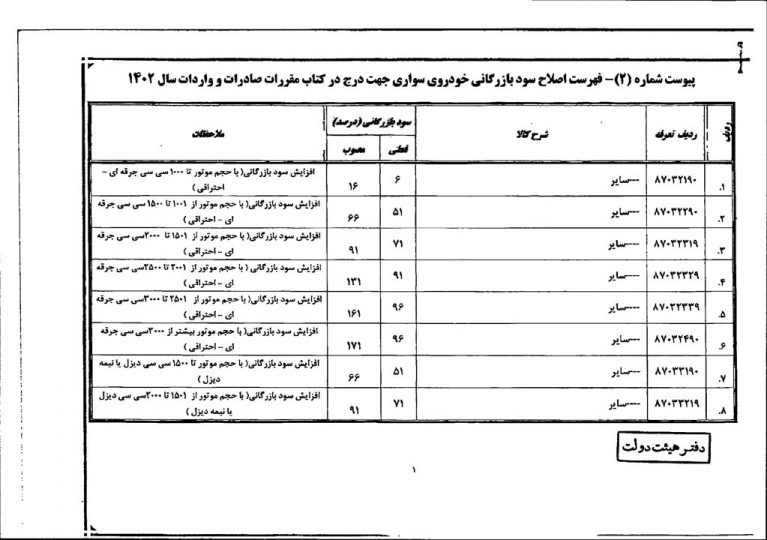 پیوست شماره (۲)- فهرست اصلاح سود بازرگانی خودروی سواری جهت درج در کتاب مقررات صادرات و واردات سال ۱۴۰۲
ردیف ردیف تعرفه شرح کالا سود بازرگانی (درصد) ملاحظات
فعلی مصوب
۱. ۸۷۰۳۲۱۹۰ ----سایر ۶ ۱۶ افزایش سود بازرگانی( با حجم موتور تا ۱۰۰۰ سی سی جرقه ای -
احتراقی )
۲. ۸۷۰۳۲۲۹۰ ----سایر ۵۱ ۶۶ افزایش سود بازرگانی( با حجم موتور از ۱۰۰۱ تا ۱۵۰۰ سی سی جرقه
ای - احتراقی )
۳. ۸۷۰۳۲۳۱۹ ----سایر ۷۱ ۹۱ افزایش سود بازرگانی( با حجم موتور از ۱۵۰۱ تا ۲۰۰۰سی سی جرقه
ای - احتراقی )
۴. ۸۷۰۳۲۳۲۹ ----سایر ۹۱ ۱۳۱ افزایش سود بازرگانی( با حجم موتور از ۲۰۰۱ تا ۲۵۰۰سی سی جرقه
ای - احتراقی )
۵. ۸۷۰۳۲۳۳۹ ----سایر ۹۶ ۱۶۱ افزایش سود بازرگانی( با حجم موتور از ۲۵۰۱ تا ۳۰۰۰سی سی جرقه
ای - احتراقی )
۶. ۸۷۰۳۲۴۹۰ ----سایر ۹۶ ۱۷۱ افزایش سود بازرگانی( با حجم موتور بیشتر از ۳۰۰۰سی سی جرقه
ای - احتراقی )
۷. ۸۷۰۳۳۱۹۰ ----سایر ۵۱ ۶۶ افزایش سود بازرگانی( با حجم موتور تا ۱۵۰۰ سی سی دیزل یا نیمه
دیزل )
۸. ۸۷۰۳۳۲۱۹ ----سایر ۷۱ ۹۱ افزایش سود بازرگانی( با حجم موتور از ۱۵۰۱ تا ۲۰۰۰سی سی دیزل
یا نیمه دیزل )
دفتر هیئت دولت
۱